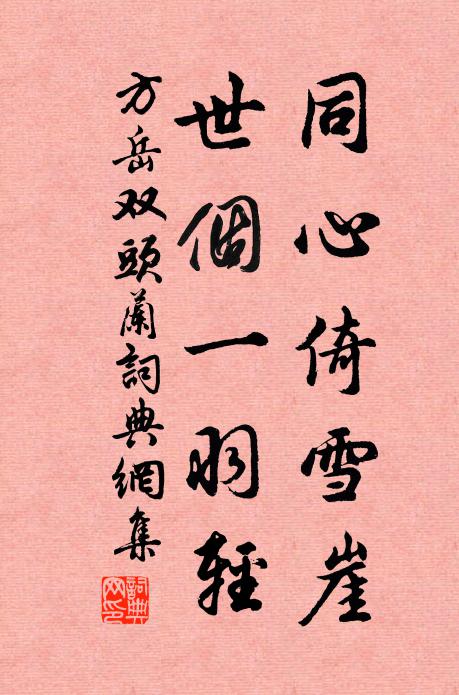 同心倚雪崖
世個一羽輕
方岳双頭蘭詞典網集
詞典网印